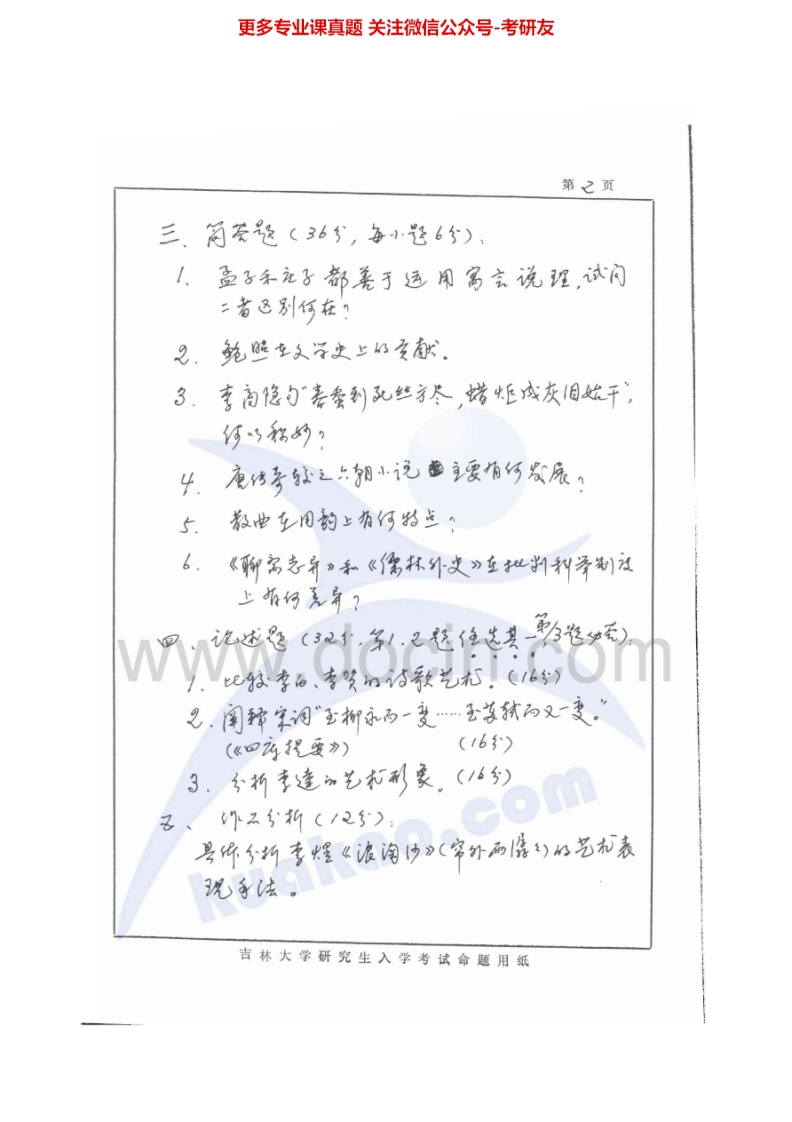 更多专业课真题 关注微信公众号-考研友
第 2 页
三、简答题（36分，每小题6分）：
1. 孟子和庄子都善于运用寓言说理，试问
二者区别何在？
2. 鲍照在文学史上的贡献。
3. 李商隐句“春蚕到死丝方尽，蜡炬成灰泪始干”，
何以称妙？
4. 唐传奇较之六朝小说主要有何发展？
5. 散曲在用韵上有何特点？
6. 《聊斋志异》和《儒林外史》在批判科举制度
上有何差异？
四、论述题（32分，第1、2题任选其一，第3题必答）：
1. 比较李白、李贺的诗歌艺术。（16分）
2. 阐释宋词“至柳永而一变……至苏轼而又一变。”
（《四库提要》） （16分）
3. 分析李逵的艺术形象。（16分）
五、作品分析（12分）：
具体分析李煜《浪淘沙》（帘外雨潺潺）的艺术表
现手法。
吉林大学研究生入学考试命题用纸
www.docin.com
kuakao.com